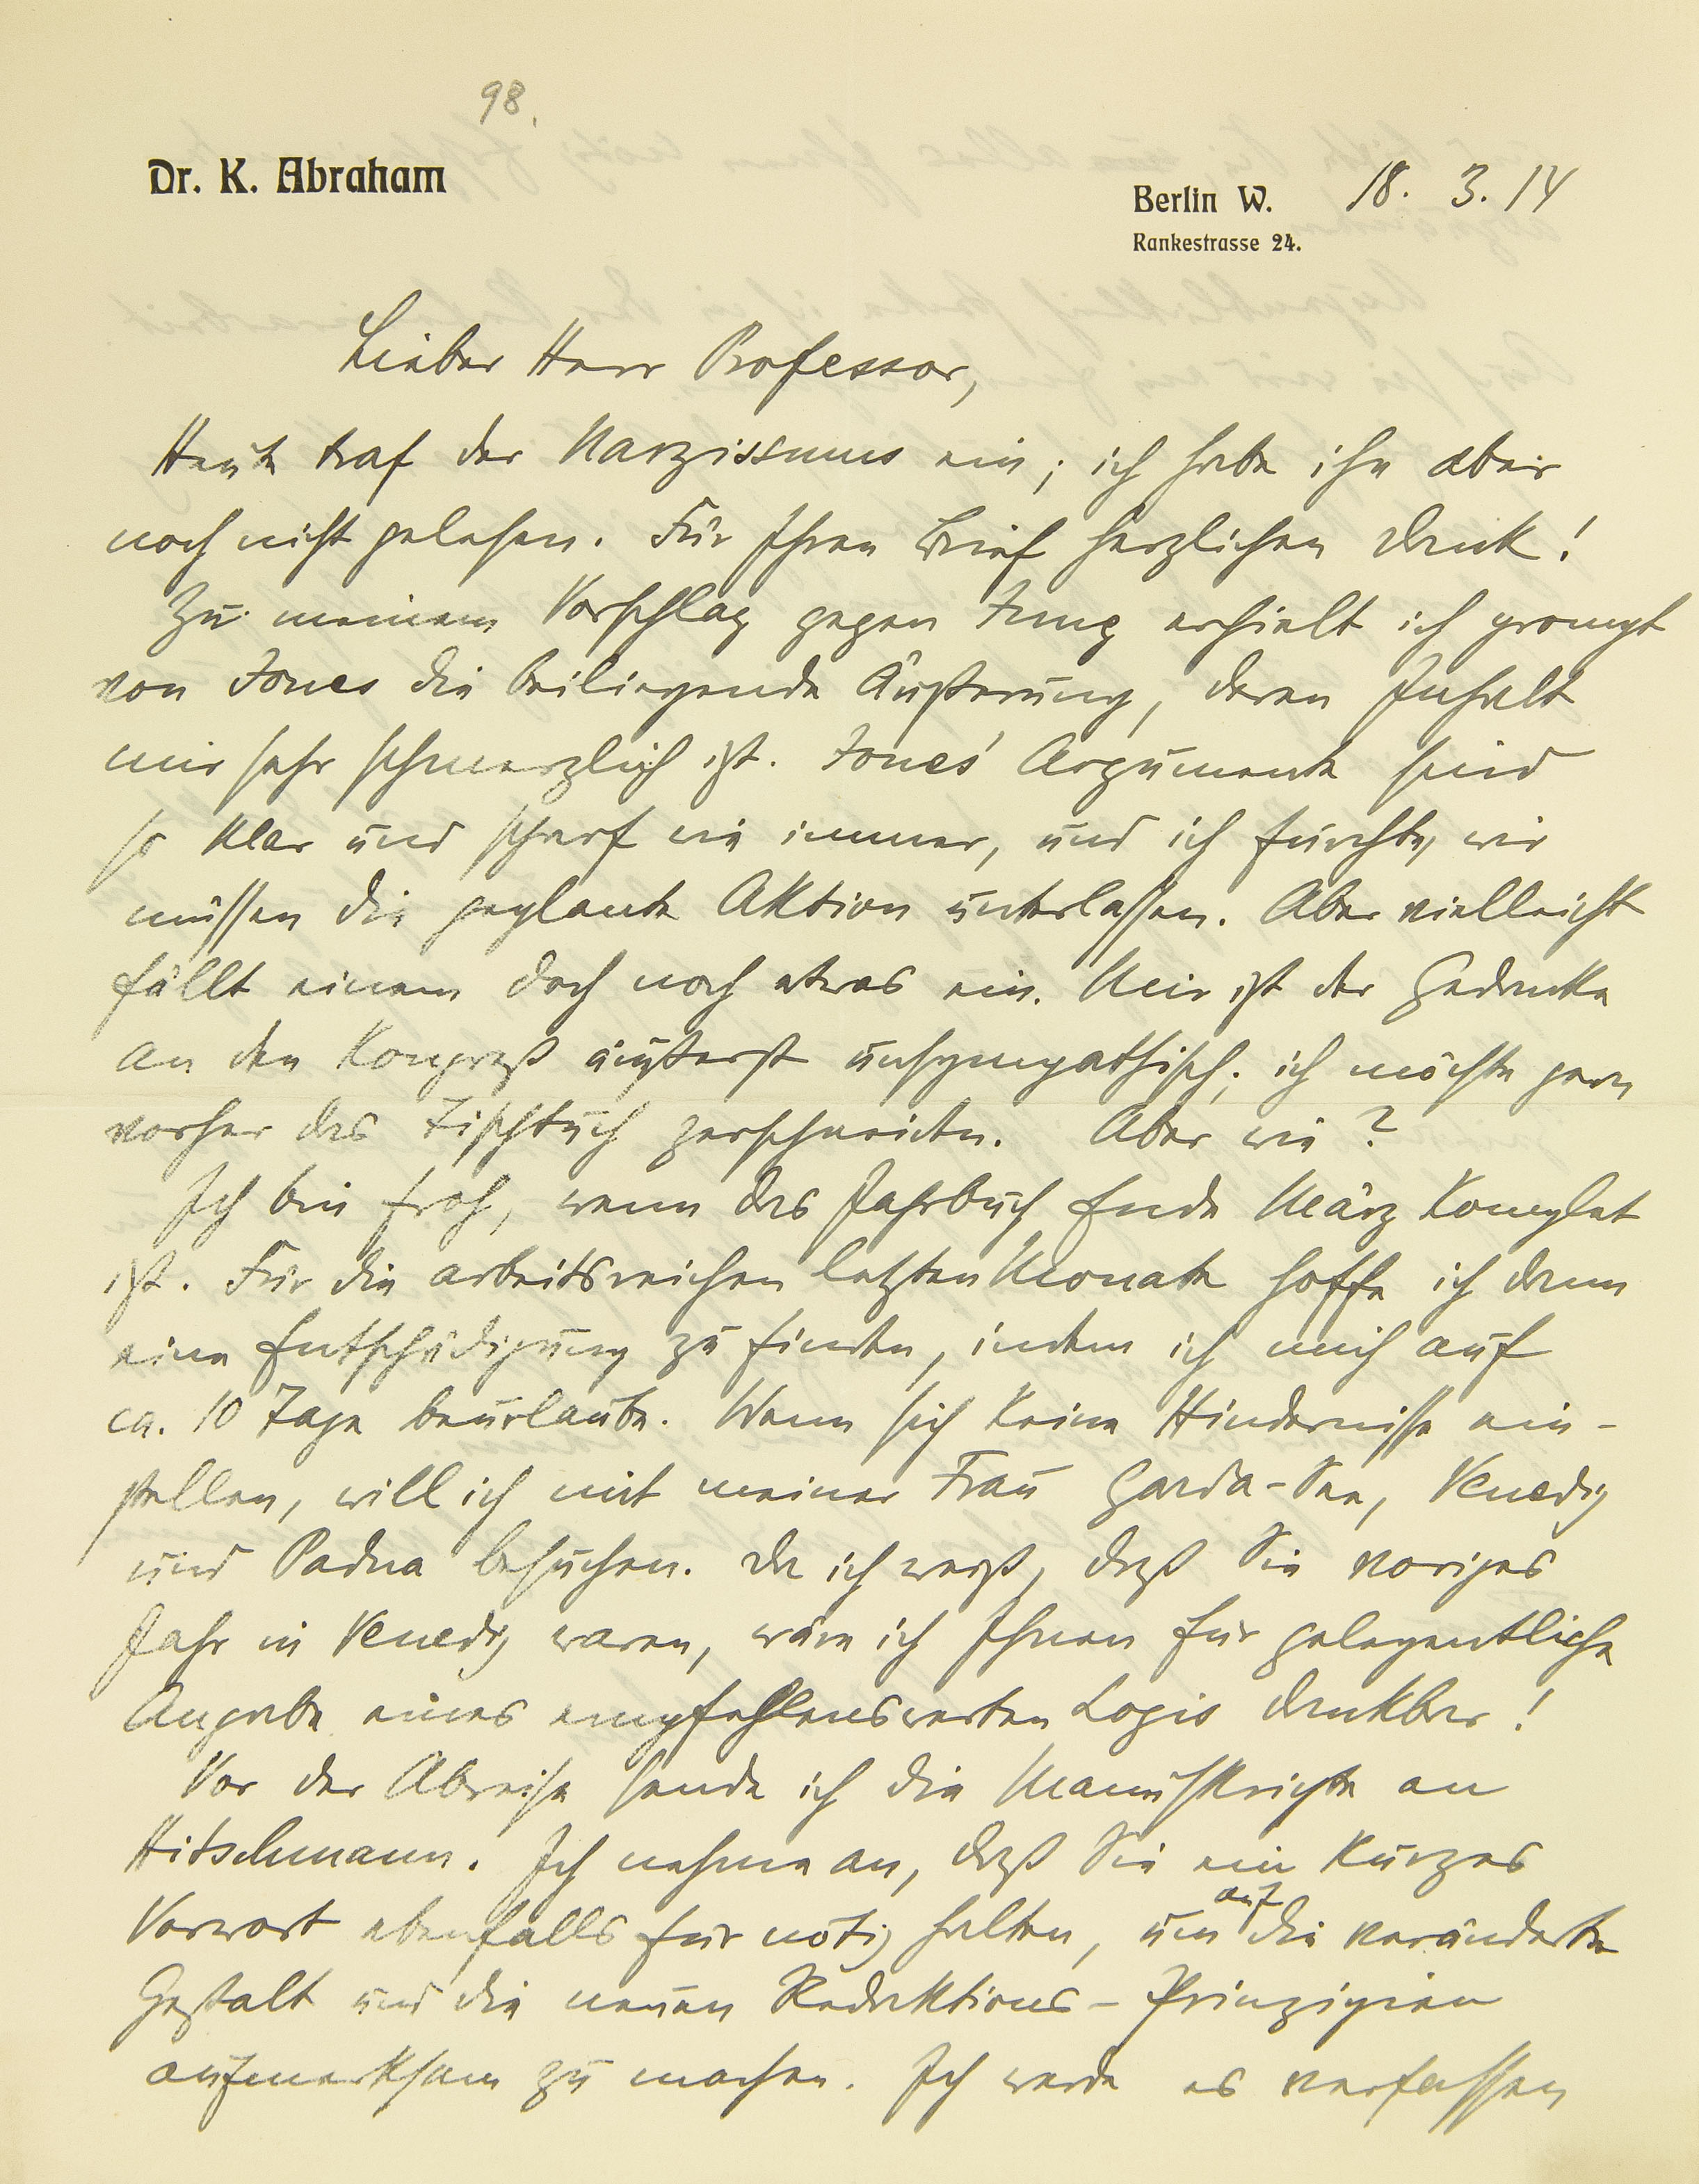 98.
Dr. K. Abraham
Berlin W. 18. 3. 14
Rankestrasse 24.
Lieber Herr Professor,
Heute traf der Narzissmus ein; ich habe ihn aber
noch nicht gelesen. Für Ihren Brief herzlichen Dank!
Zu meinem Vorschlag gegen Jung erhielt ich prompt
von Jones die beiliegende Äußerung, deren Inhalt
mir sehr schmerzlich ist. Jones' Argumente sind
so klar und scharf wie immer, und ich fürchte, wir
müssen die geplante Aktion unterlassen. Aber vielleicht
fällt einem doch noch etwas ein. Mir ist der Gedanke
an den Kongreß äußerst unsympathisch; ich möchte gern
vorher das Tischtuch zerschneiden. Aber wie?
Ich bin froh, wenn das Jahrbuch Ende März komplet
ist. Für die arbeitsreichen letzten Monate hoffe ich dann
eine Entschädigung zu finden, indem ich mich auf
ca. 10 Tage beurlaube. Wenn sich keine Hindernisse ein-
stellen, will ich mit meiner Frau Garda-See, Venedig
und Padua besuchen. Da ich weiß, daß Sie voriges
Jahr in Venedig waren, wäre ich Ihnen für gelegentliche
Angabe eines empfehlenswerten Logis dankbar!
Vor der Abreise sende ich die Manuskripte an
Hitschmann. Ich nehme an, daß Sie ein kurzes
Vorwort ebenfalls für nötig halten, um auf die veränderte
Gestalt und die neuen Redaktions-Prinzipien
aufmerksam zu machen. Ich werde es verfassen